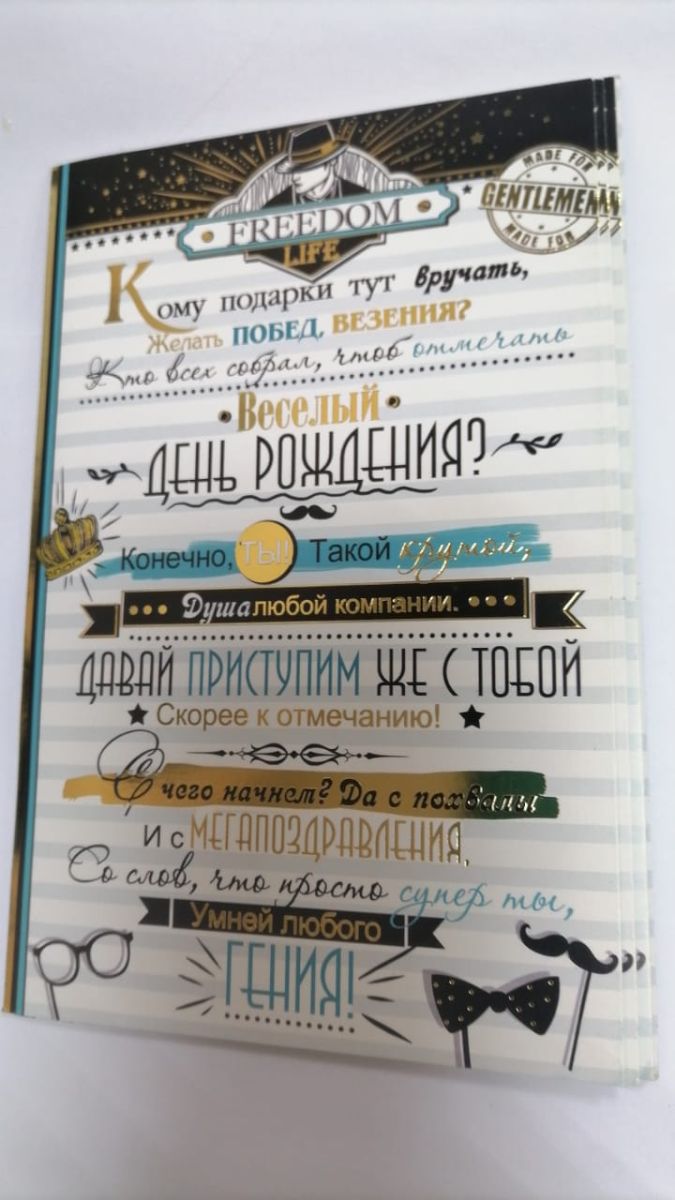 FREEDOM
LIFE
MADE FOR
GENTLEMEN
MADE FOR
Кому подарки тут вручать,
Желать ПОБЕД, ВЕЗЕНИЯ?
Кто всех собрал, чтоб отмечать
Веселый
ДЕНЬ РОЖДЕНИЯ?
Конечно, ТЫ! Такой крутой,
Душа любой компании.
ДАВАЙ ПРИСТУПИМ ЖЕ С ТОБОЙ
Скорее к отмечанию!
С чего начнем? Да с похвалы
И с МЕГАПОЗДРАВЛЕНИЯ,
Со слов, что просто супер ты,
Умней любого
ГЕНИЯ!